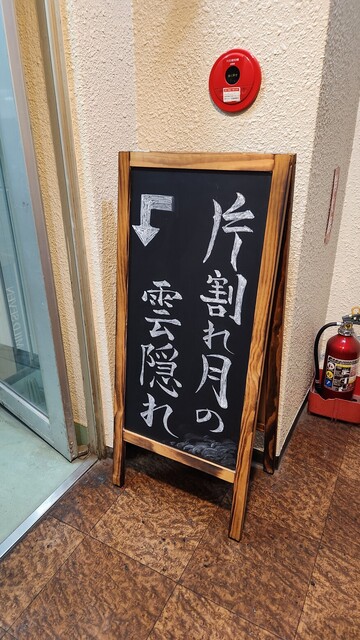 片割れ月の
雲隠れ